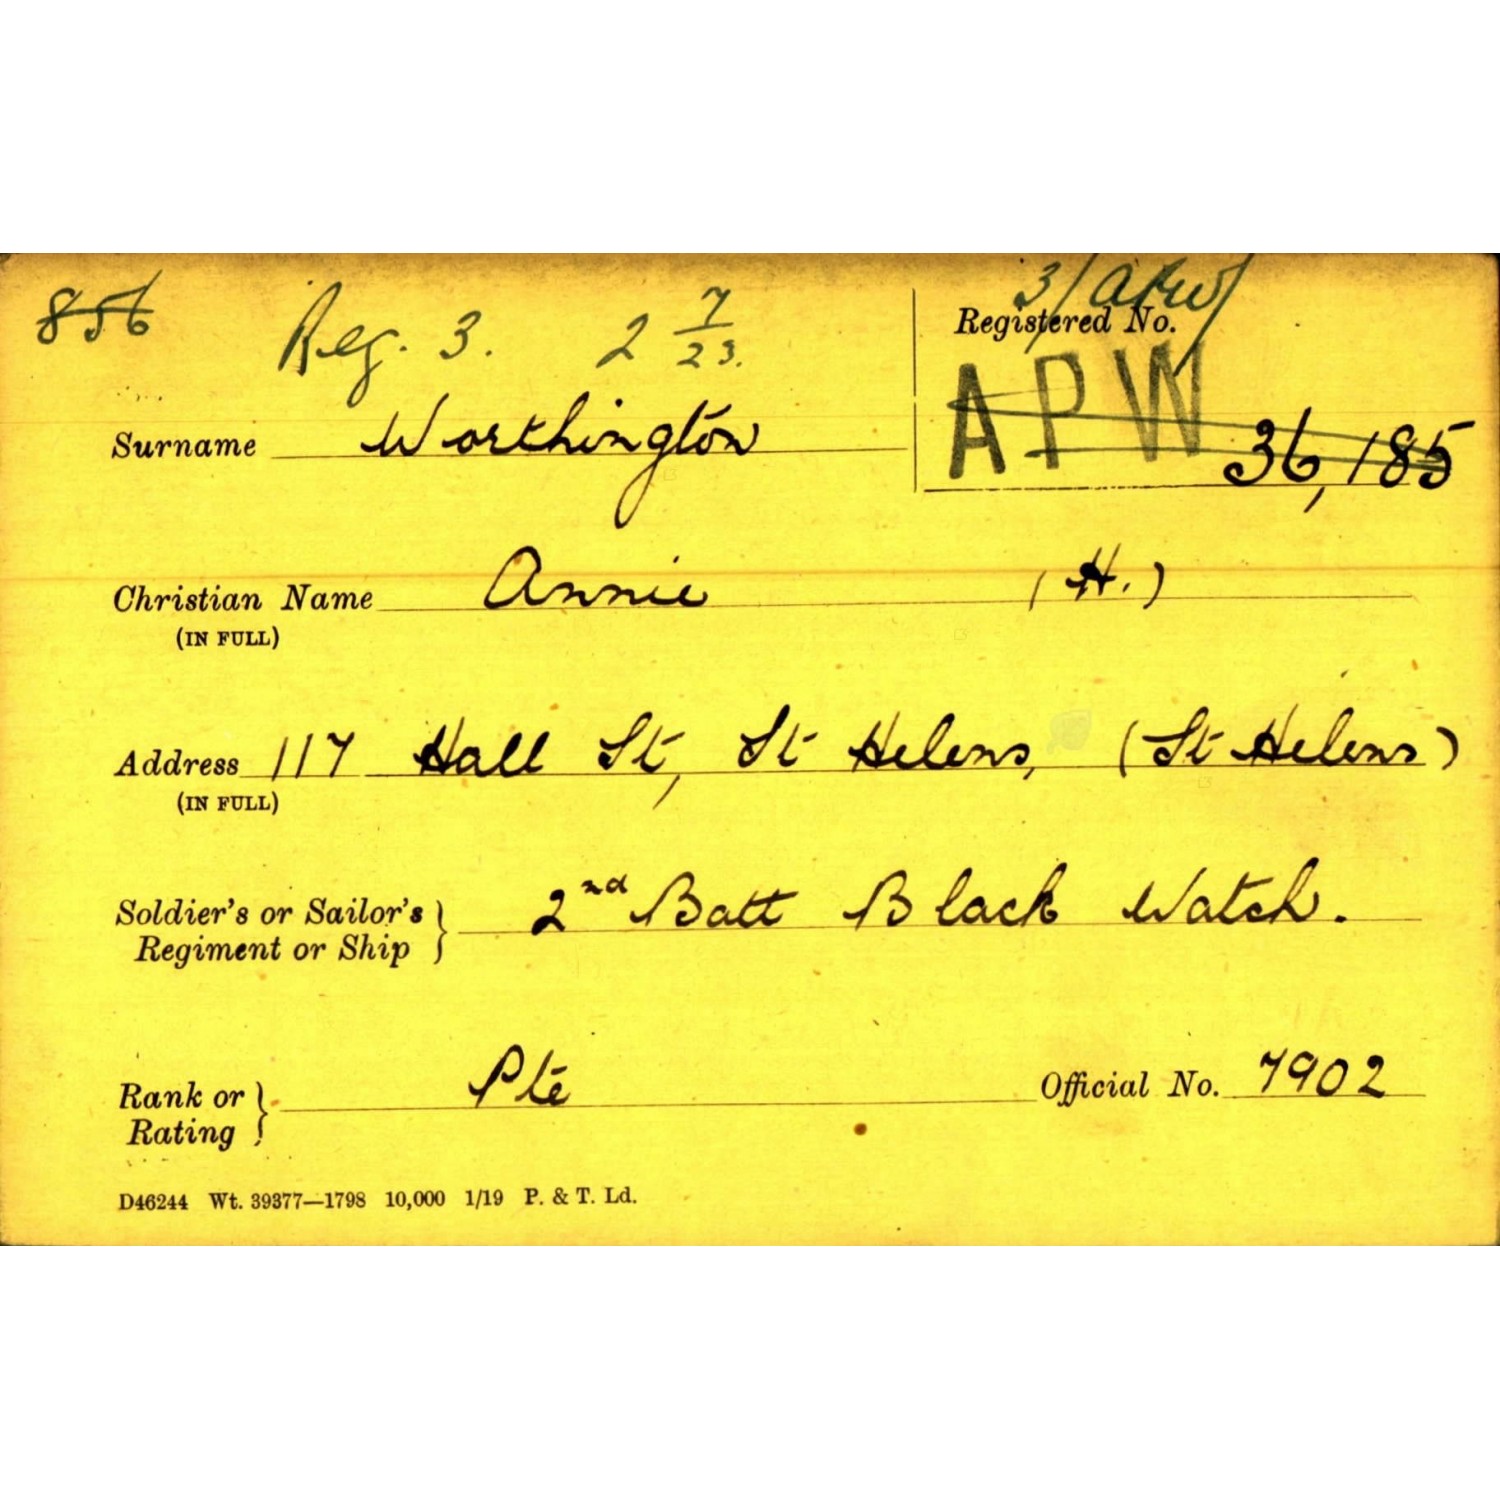 856 Reg. 3. 2 7/23. 3/APW/
Registered No.
APW 36,185
Surname Worthington
Christian Name Annie (H.)
(IN FULL)
Address 117 Hall St, St Helens, (St Helens)
(IN FULL)
Soldier's or Sailor's } 2nd Batt Black Watch.
Regiment or Ship
Rank or } Pte Official No. 7902
Rating
D46244 Wt. 39377—1798 10,000 1/19 P. & T. Ld.